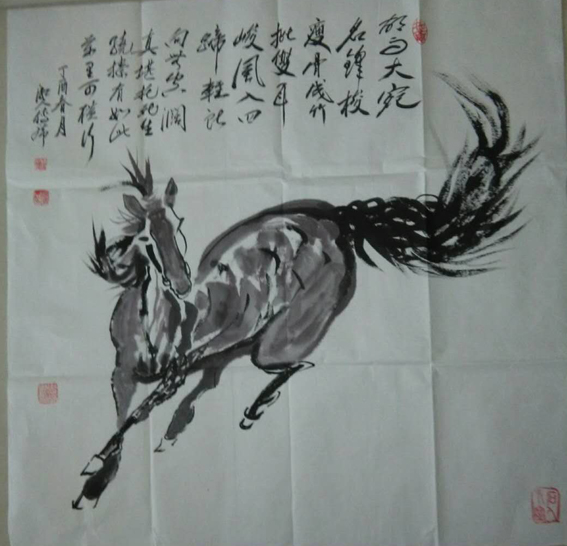 胡马大宛
名锋棱
瘦骨成竹
批雙耳
峻風入四
蹄轻所
向无空阔
真堪托死生
骁腾有如此
万里可横行
丁酉春月